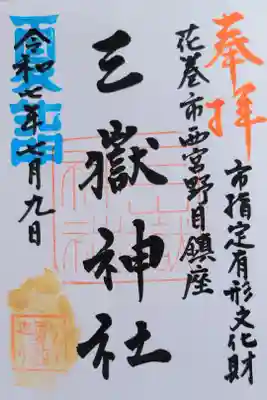 奉拝
市指定有形文化財
花巻市西宮野目鎮座
三嶽神社
令和七年七月九日